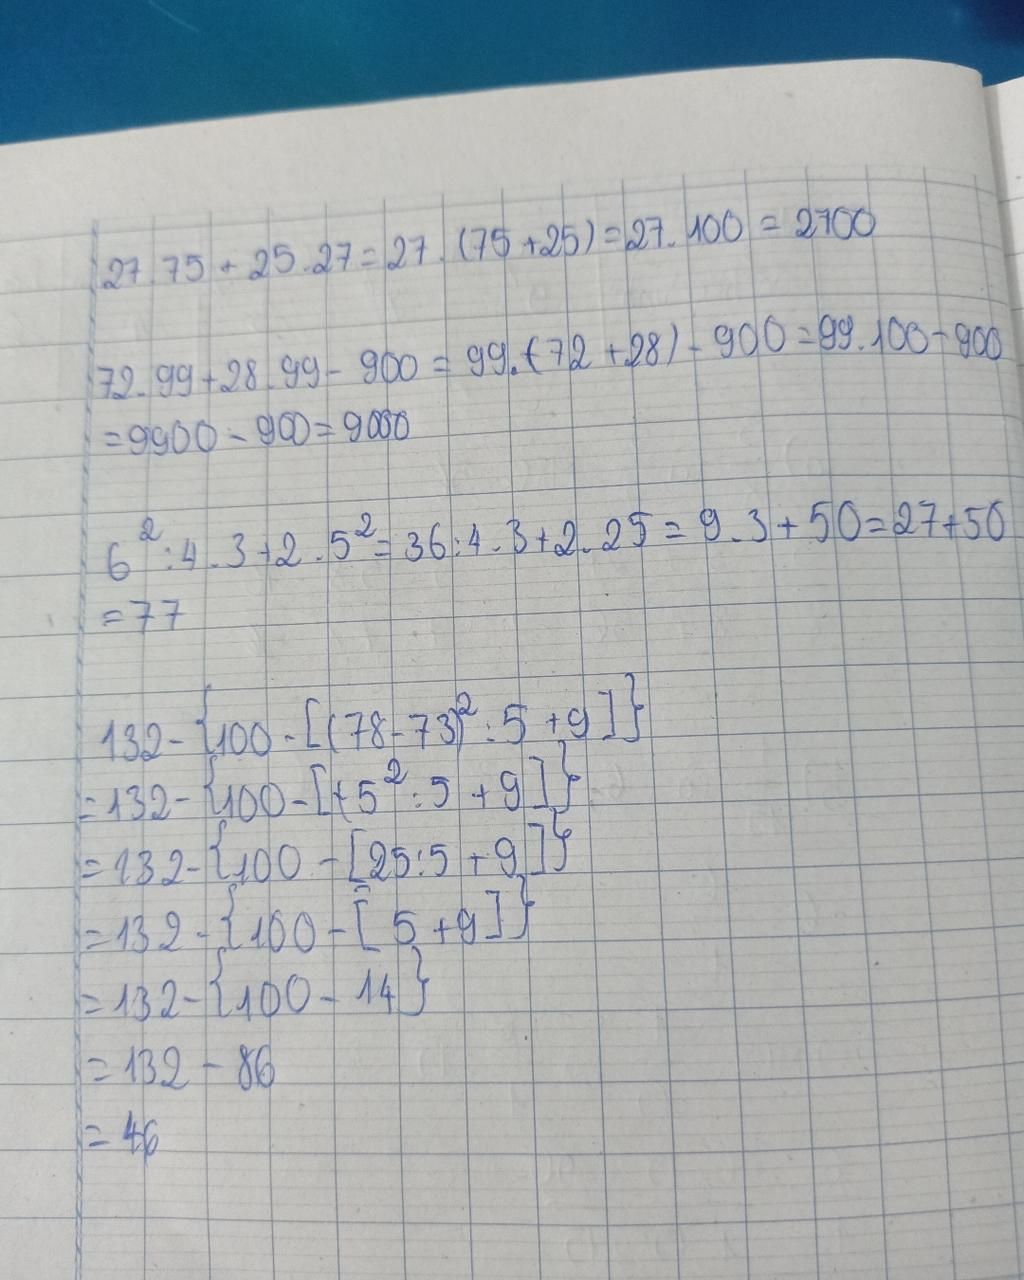 27.75 + 25.27 = 27.(75 + 25) = 27.100 = 2700
72.99 + 28.99 - 900 = 99.(72 + 28) - 900 = 99.100 - 900
= 9900 - 900 = 9000
6² : 4.3 + 2.5² = 36 : 4.3 + 2.25 = 9.3 + 50 = 27 + 50
= 77
132 - {100 - [(78 - 73)² : 5 + 9]}
= 132 - {100 - [(5² : 5 + 9]}
= 132 - {100 - [25 : 5 + 9]}
= 132 - {100 - [5 + 9]}
= 132 - {100 - 14}
= 132 - 86
= 46